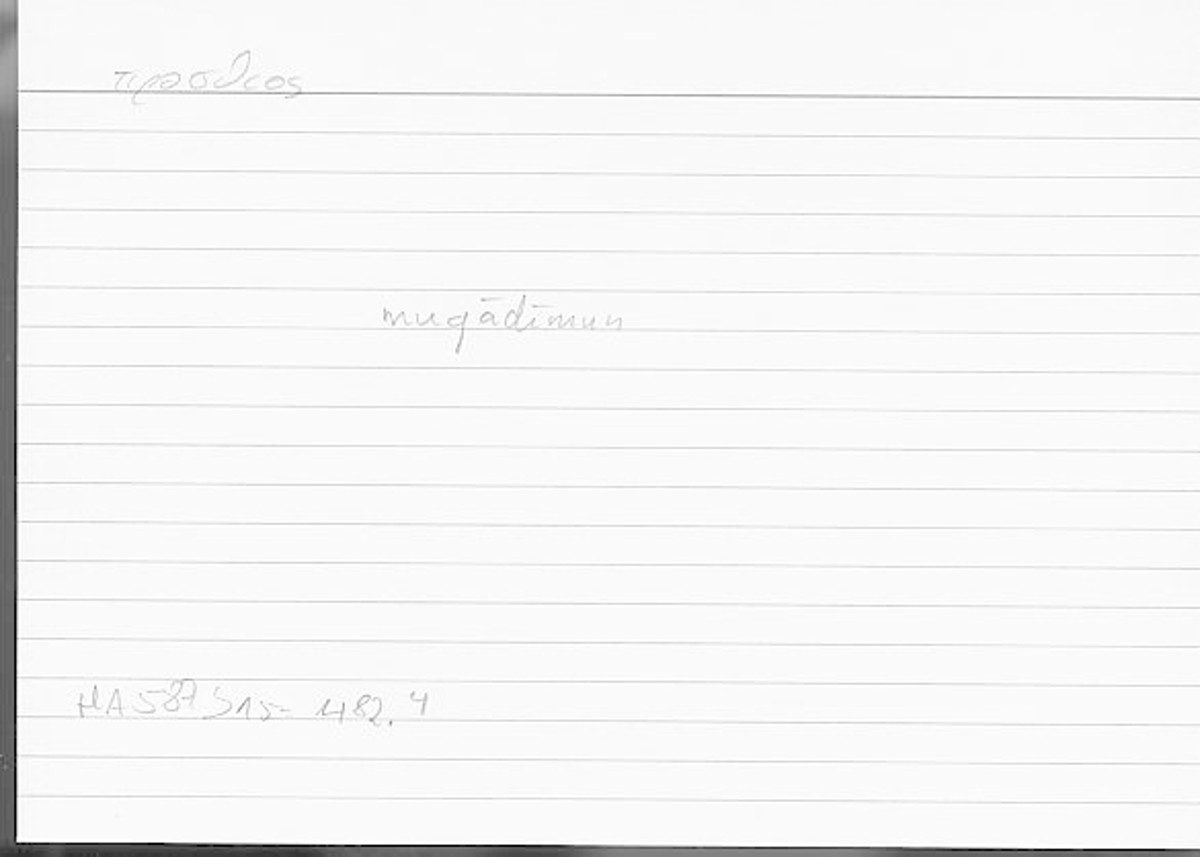 προσθιος
muqādimun
HA 587 b15 - 482.4